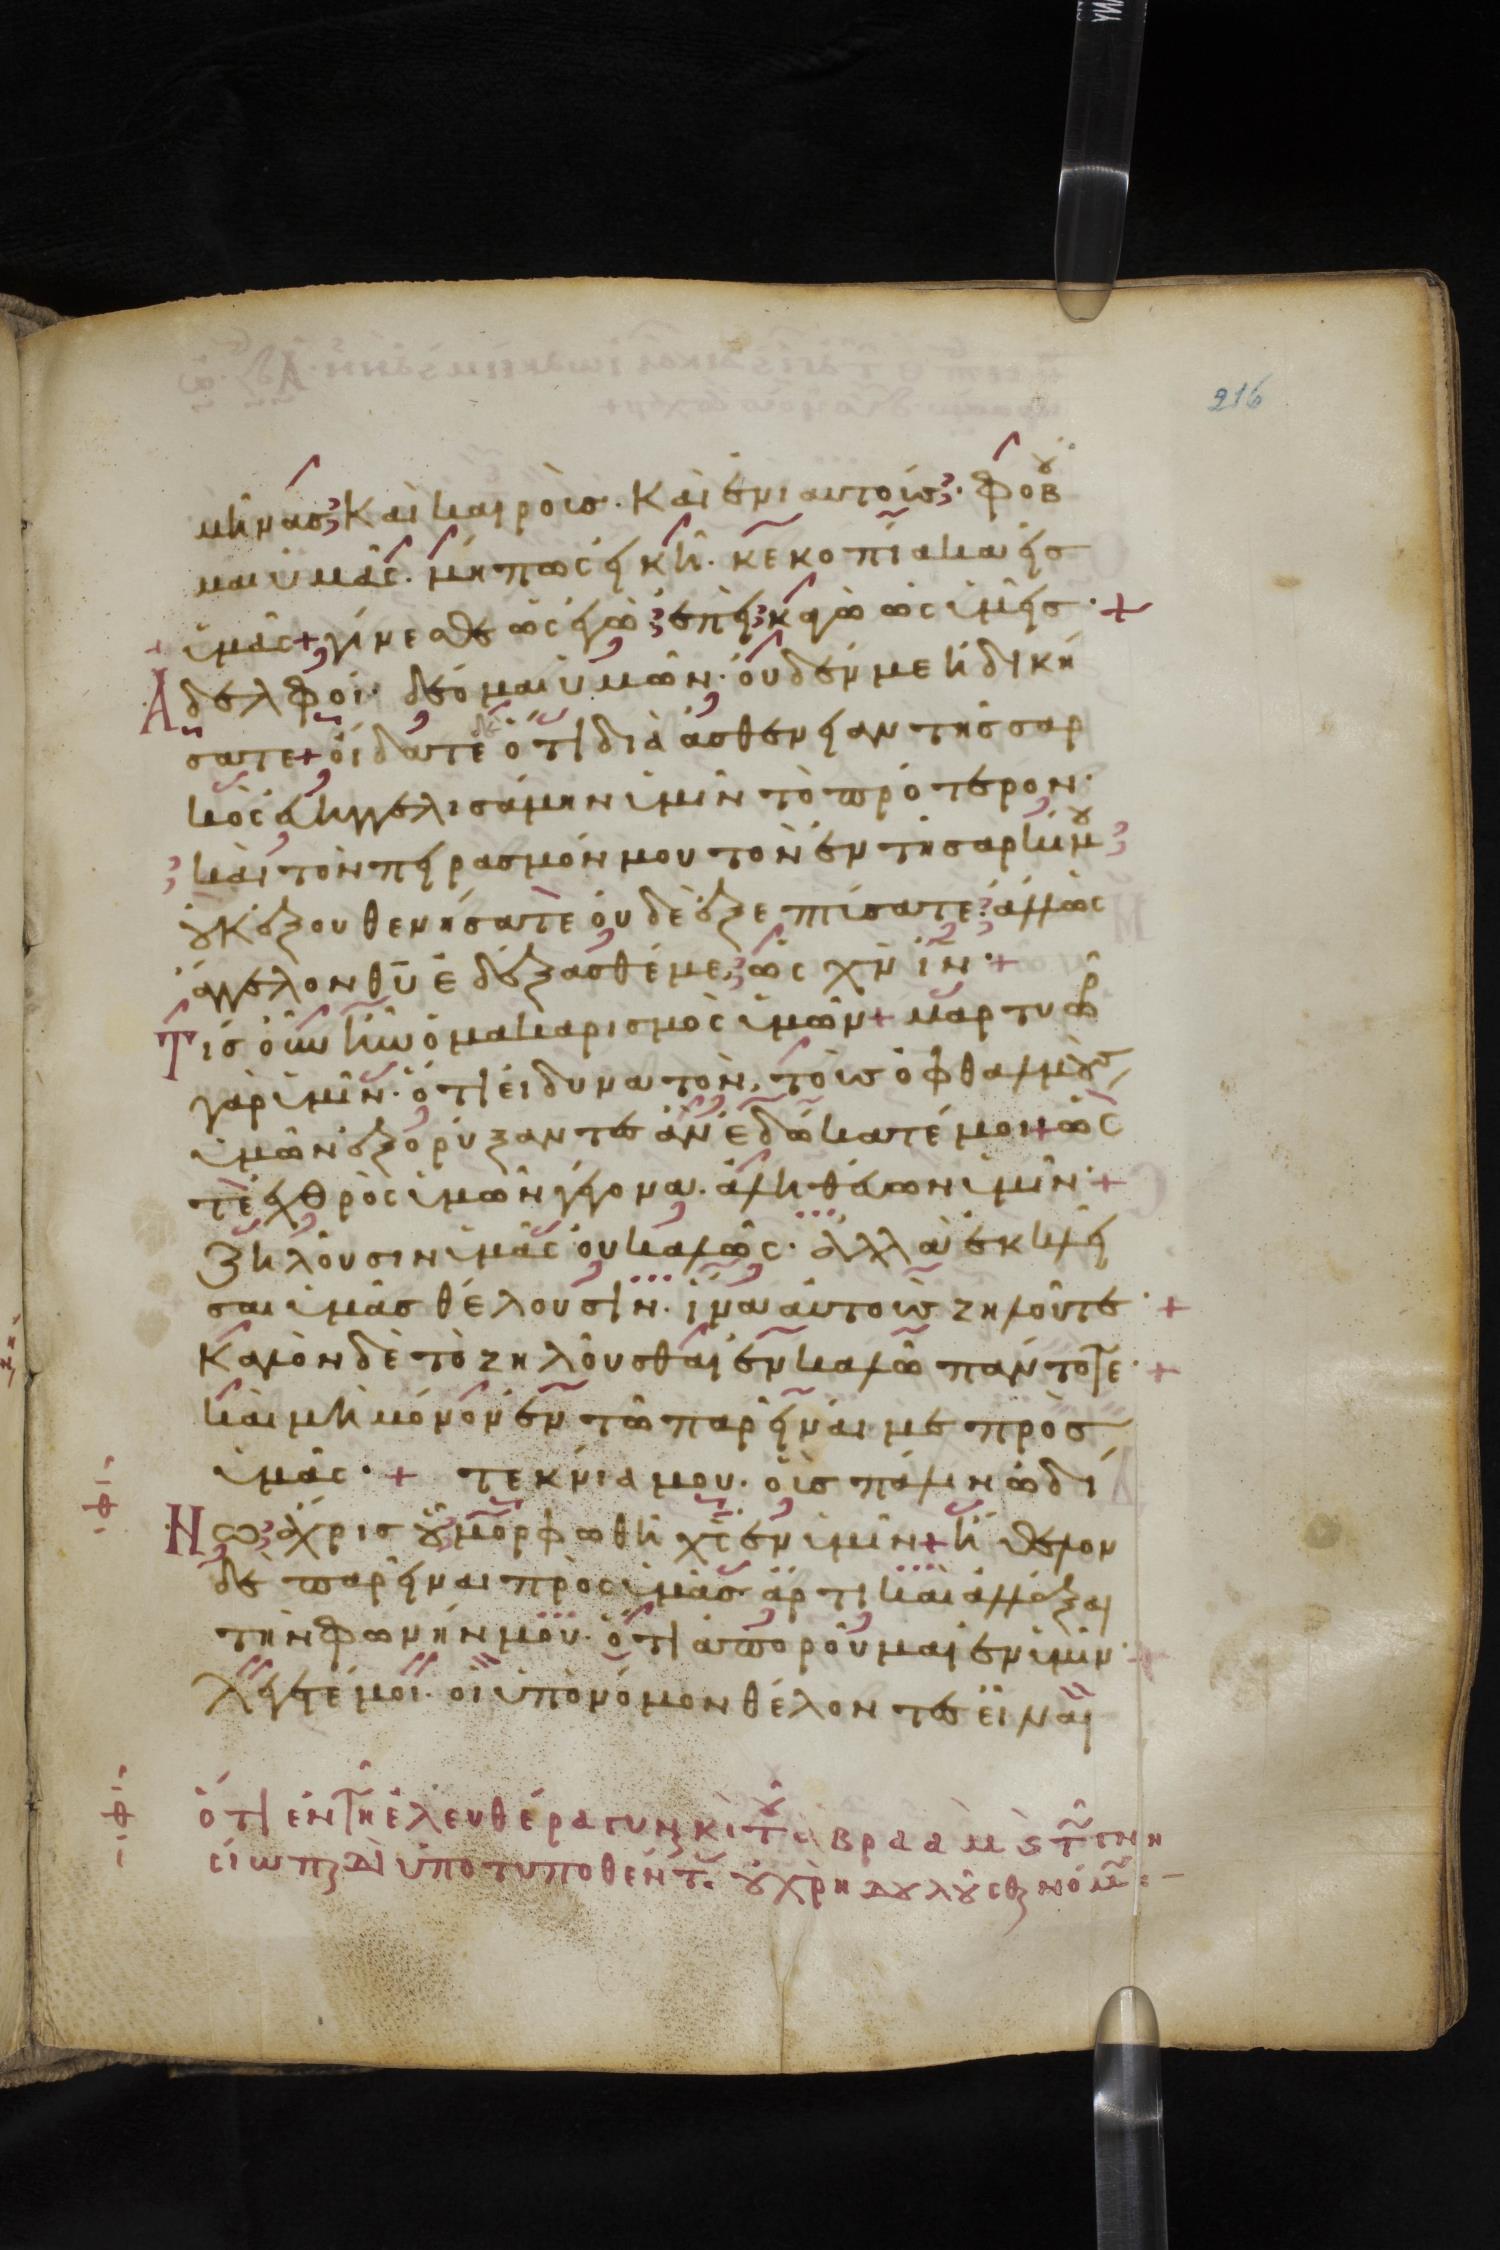 216
μῆνας καὶ καιροὺς. καὶ ἐνιαυτοὺς. φοβοῦ
μαι ὑμᾶς. μήπως εἰκῆ. κεκοπίακα εἰς
ὑμᾶς + γίνεσθε ὡς ἐγὼ ἐπεὶ κἀγὼ ὡς ὑμεῖς. +
Ἀδελφοί. δέομαι ὑμῶν. οὐδέν με ἠδική
σατε + οἴδατε ὅτι διὰ ἀσθένειαν τῆς σαρ
κὸς εὐηγγελισάμην ὑμῖν τὸ πρότερον.
καὶ τὸν πειρασμόν μου τὸν ἐν τῇ σαρκί μου
οὐκ ἐξουθενήσατε οὐδὲ ἐξεπτύσατε. ἀλλ' ὡς
ἄγγελον θῦ ἐδέξασθέ με, ὡς χν ιν. +
Τίς οὖν ἦν ὁ μακαρισμὸς ὑμῶν + μαρτυρῶ
γὰρ ὑμῖν. ὅτι εἰ δυνατὸν, τοὺς ὀφθαλμοὺς
ὑμῶν ἐξορύξαντες ἂν ἐδώκατέ μοι + ὥς
τε ἐχθρὸς ὑμῶν γέγονα. ἀληθεύων ὑμῖν. +
Ζηλοῦσιν ὑμᾶς οὐ καλῶς. ἀλλὰ ἐκκλεῖ
σαι ὑμᾶς θέλουσιν. ἵνα αὐτοὺς ζηλοῦτε. +
Καλὸν δὲ τὸ ζηλοῦσθαι ἐν καλῶ πάντοτε. +
καὶ μὴ μόνον ἐν τῶ παρεῖναί με πρὸς
ὑμᾶς. + τεκνία μου. οὓς πάλιν ὠδί
Νω, ἄχρις οὗ μορφωθῆ χς ἐν ὑμῖν + ἤθελον
δὲ παρεῖναι πρὸς ὑμᾶς ἄρτι καὶ ἀλλάξαι
τὴν φωνήν μου. ὅτι ἀποροῦμαι ἐν ὑμῖν. +
λέγετέ μοι. οἱ ὑπὸ νόμον θέλοντες εἶναι
ὅτι ἐν τῆ ἐλευθέρα γυναικὶ τοῦ ἀβραὰμ